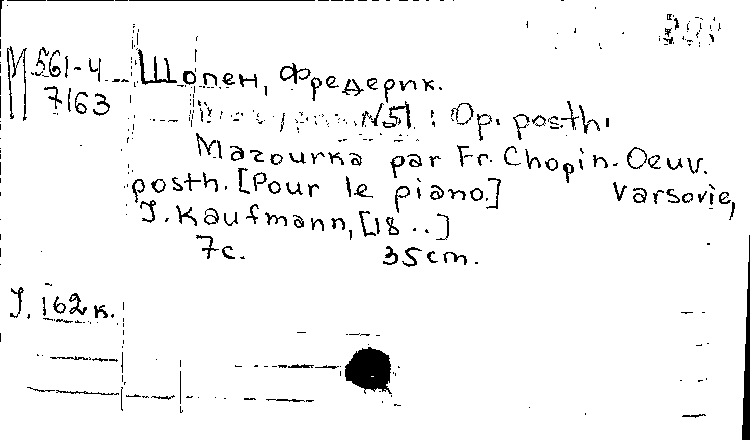 М 561-4
7163
Шопен, Фредерик.
N51 : Op. posth.
Mazourka par Fr. Chopin. Oeuv.
posth. [Pour le piano.] Varsovie,
J. Kaufmann, [18..]
7с. 35cm.
J. 162к.